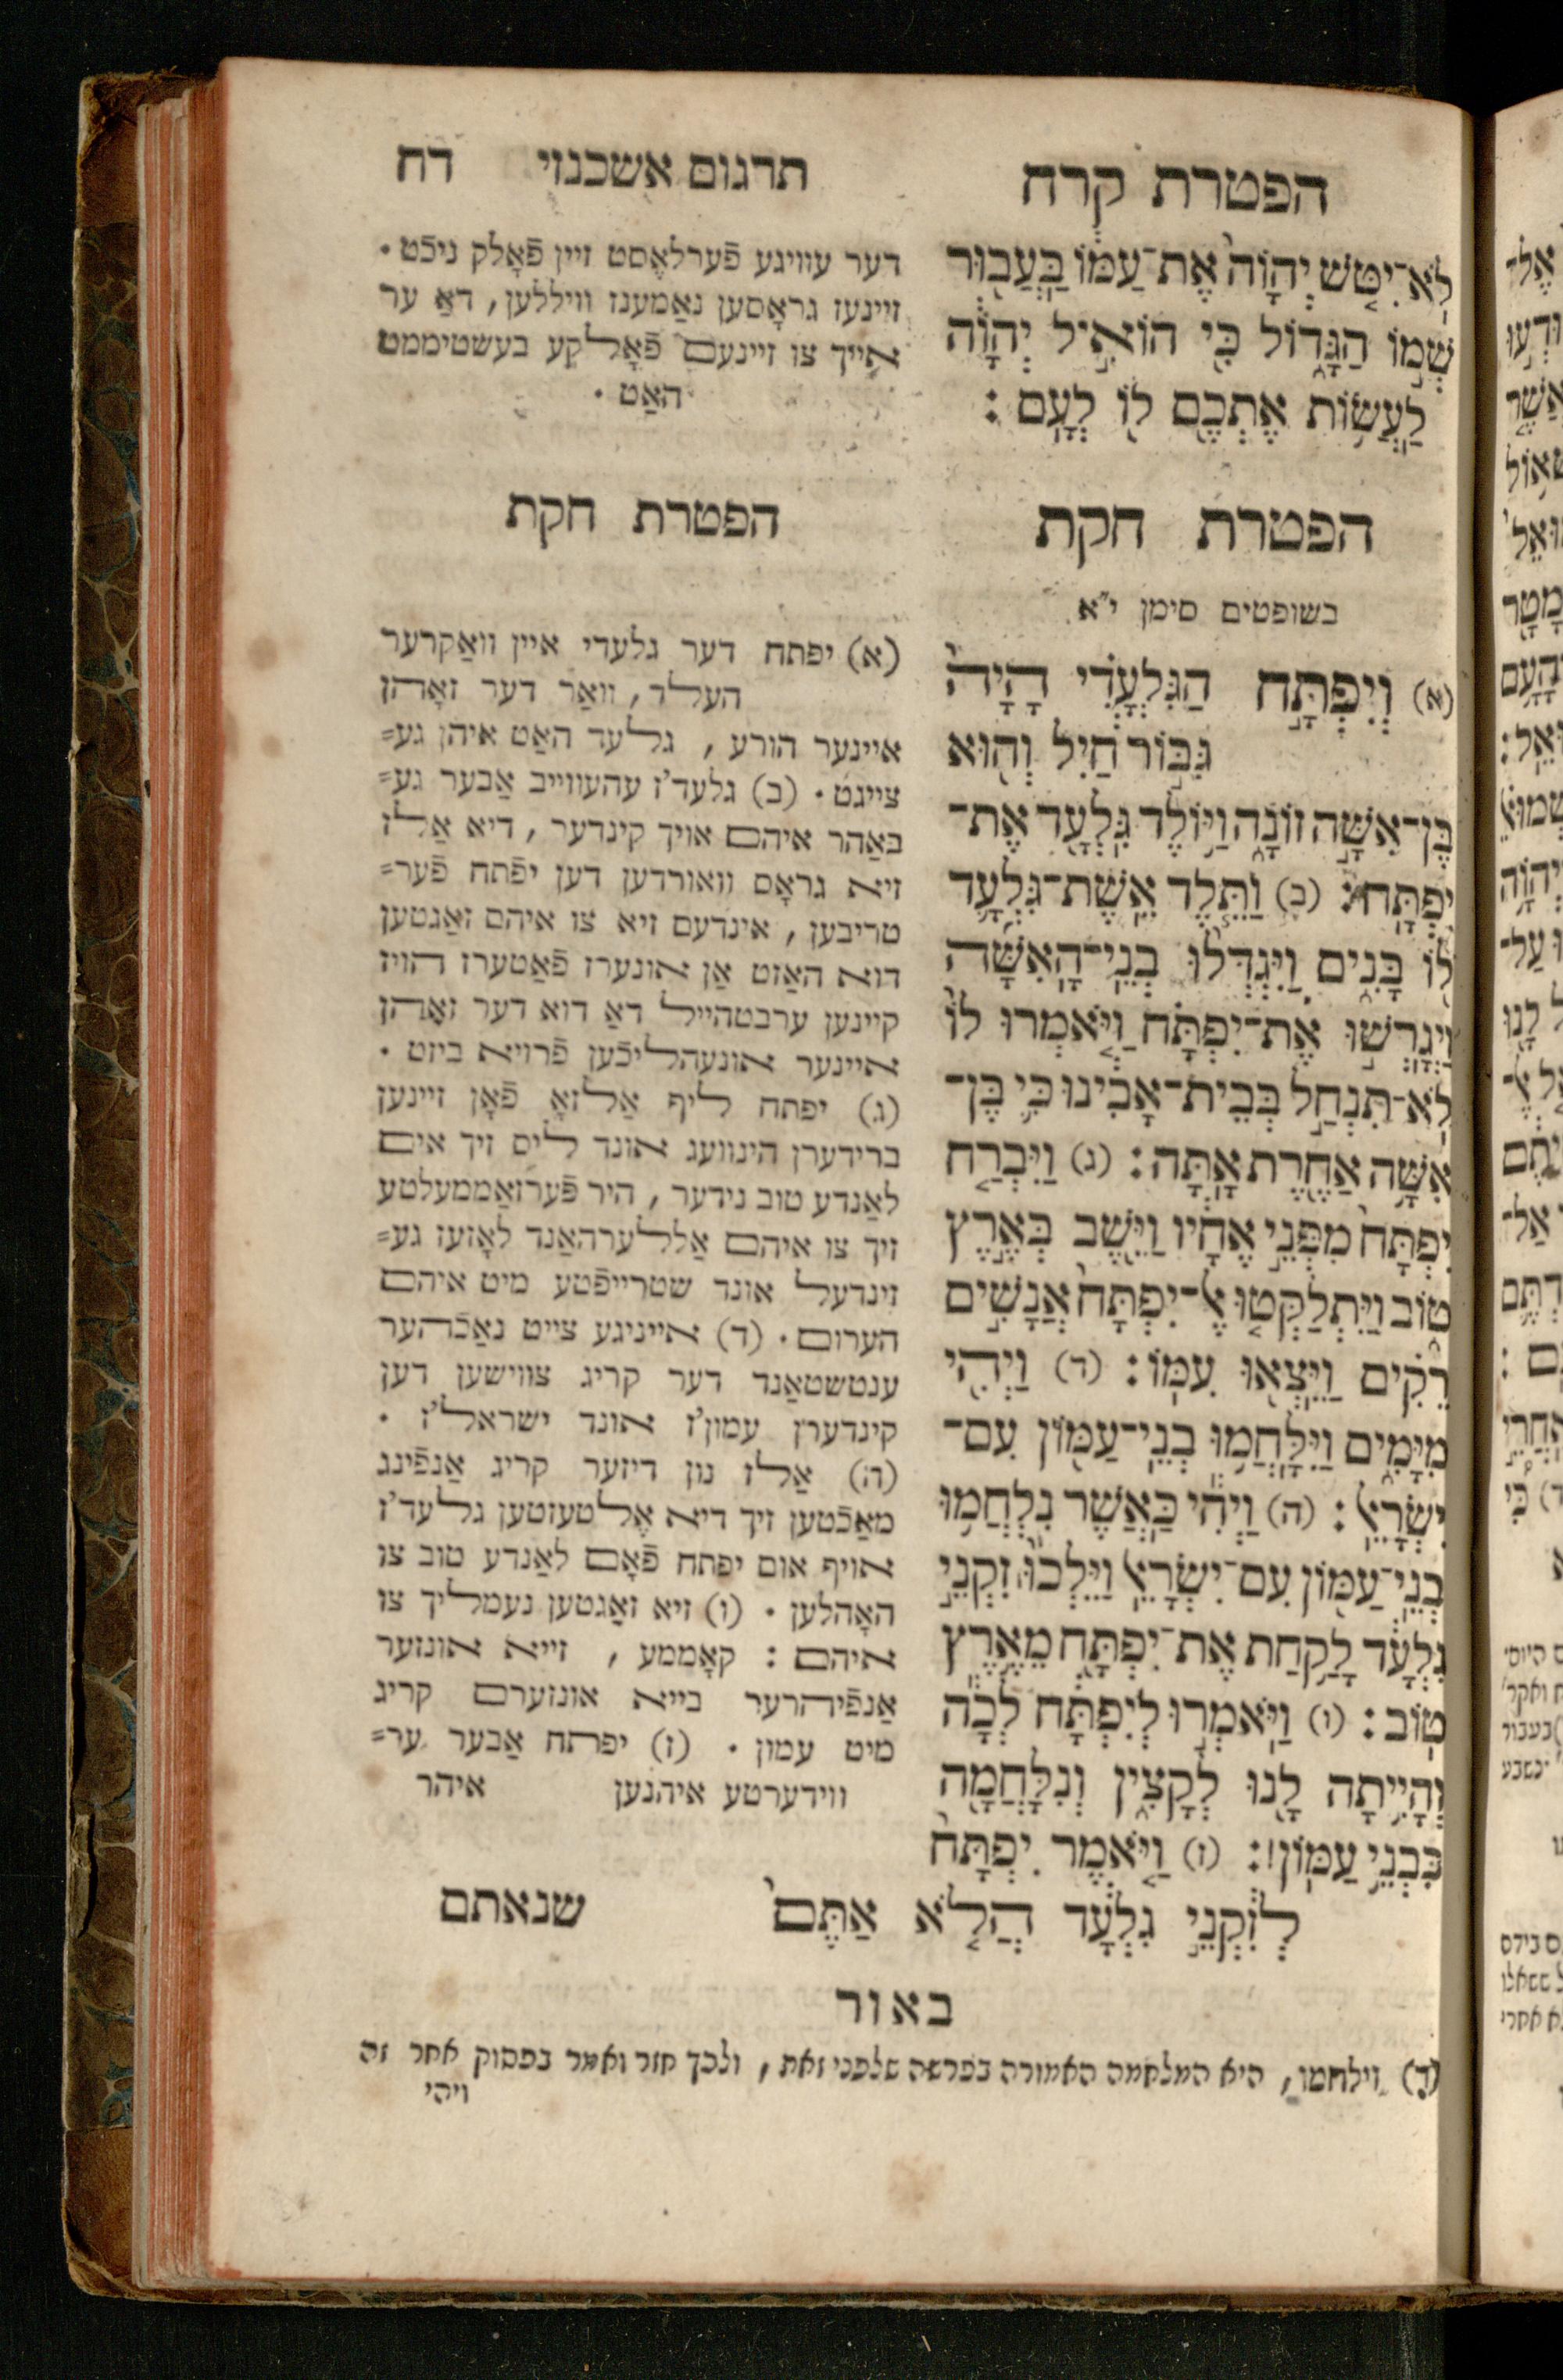 הפטרת קרח
לֹא־יִטֹּשׁ יְהוָֹה אֶת־עַמּוֹ בַּעֲבוּר
שְׁמוֹ הַגָּדוֹל כִּי הוֹאִיל יְהוָֹה
לַעֲשׂוֹת אֶתְכֶם לוֹ לְעָם :
הפטרת חקת
בשופטים סימן י״א
(א) וְיִפְתָּח הַגִּלְעָדִי הָיָה
גִּבּוֹר חַיִל וְהוּא
בֶּן־אִשָּׁה זוֹנָה וַיּוֹלֶד גִּלְעָד אֶת־
יִפְתָּח : (ב) וַתֵּלֶד אֵשֶׁת־גִּלְעָד
לוֹ בָּנִים וַיִּגְדְּלוּ בְנֵי־הָאִשָּׁה
וַיְגָרֲשׁוּ אֶת־יִפְתָּח וַיֹּאמְרוּ לוֹ
לֹא־תִנְחַל בְּבֵית־אָבִינוּ כִּי בֶּן־
אִשָּׁה אַחֶרֶת אָתָּה : (ג) וַיִּבְרַח
יִפְתָּח מִפְּנֵי אֶחָיו וַיֵּשֶׁב בְּאֶרֶץ
טוֹב וַיִּתְלַקְּטוּ אֶל־יִפְתָּח אֲנָשִׁים
רֵקִים וַיֵּצְאוּ עִמּוֹ : (ד) וַיְהִי
מִיָּמִים וַיִּלָּחֲמוּ בְנֵי־עַמּוֹן עִם־
יִשְׂרָאֵל : (ה) וַיְהִי כַּאֲשֶׁר נִלְחֲמוּ
בְנֵי־עַמּוֹן עִם־יִשְׂרָאֵל וַיֵּלְכוּ זִקְנֵי
גִלְעָד לָקַחַת אֶת־יִפְתָּח מֵאֶרֶץ
טוֹב : (ו) וַיֹּאמְרוּ לְיִפְתָּח לְכָה
וְהָיִיתָה לָּנוּ לְקָצִין וְנִלָּחֲמָה
בִּבְנֵי עַמּוֹן : (ז) וַיֹּאמֶר יִפְתָּח
לְזִקְנֵי גִלְעָד הֲלֹא אַתֶּם
שנאתם
תרגום אשכנזי דח
דער עוויגע פֿערלאֶסט זיין פֿאָלק ניכֿט .
זיינעז גראָסען נאַמענז ווילללען , דאַ ער
אייך צו זיינעם פֿאָלקע בעשטיממט
האַט .
הפטרת חקת
(א) יפתח דער גלעדי איין וואַקרער
העלד , וואַר דער זאָהן
איינער הורע , גלעד האַט איהן גע=
צייגט . (ב) גלעד'ז עהעווייב אַבער גע=
באַהר איהם אויך קינדער , דיא אַלז
זיא גראָס וואורדען דען יפֿתח פֿער=
טריבען , אינדעם זיא צו איהם זאַגטען
דוא האַזט אַן אונערז פֿאַטערז הויז
קיינען ערבטהייל דאַ דוא דער זאָהן
איינער אונעהליכֿען פֿרויא ביזט .
(ג) יפתח ליף אַלזאָ פֿאָן זיינען
ברידערן הינוועג אונד ליס זיך אים
לאַנדע טוב נידער , היר פֿערזאַממעלטע
זיך צו איהם אַללערהאַנד לאָזעז גע=
זינדעל אונד שטרייפֿטע מיט איהם
הערום . (ד) אייניגע צייט נאַכֿהער
ענטשטאַנד דער קריג צווישען דען
קינדערן עמון'ז אונד ישראל'ז .
(ה) אַלז נון דיזער קריג אַנפֿינג
מאַכֿטען זיך דיא אֶלטעזטען גלעד'ז
אויף אום יפתח פֿאָם לאַנדע טוב צו
האָהלען . (ו) זיא זאַגטען נעמליך צו
איהם : קאָממע , זייא אונזער
אַנפֿיהרער בייא אונזערם קריג
מיט עמון . (ז) יפתח אַבער ער=
ווידערטע איהנען איהר
באור
(ד) וילחמו , היא המלחמה האמורה בפרשה שלפני זאת , ולכך חזר ואמר בפסוק אחר זה
ויהי